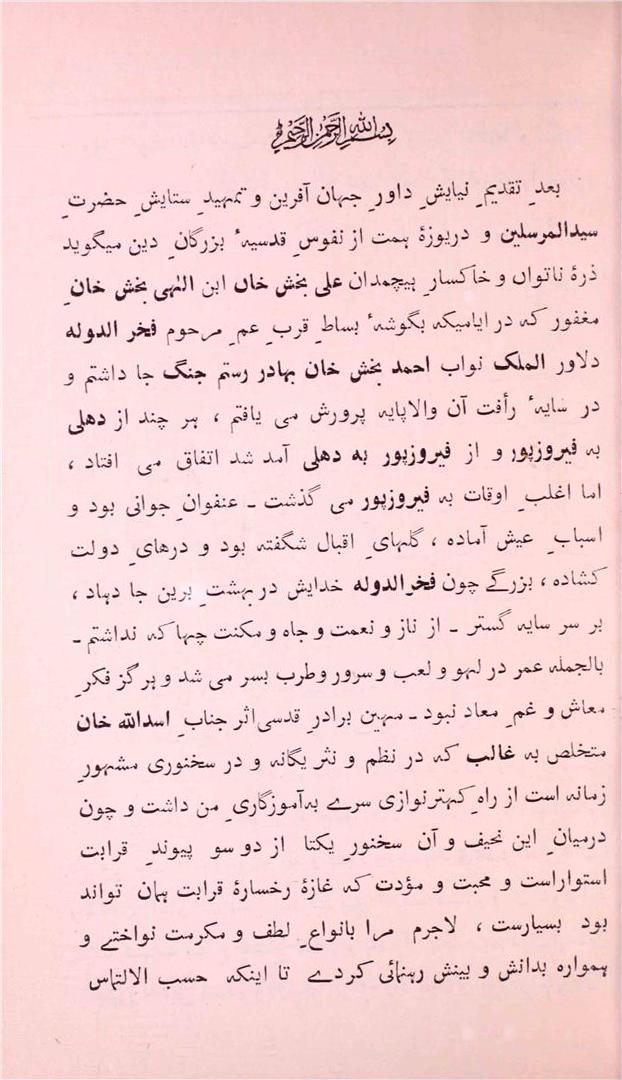 بسم الله الرحمن الرحیم
بعدِ تقدیمِ نیایشِ داورِ جہان آفرین و تمہیدِ ستایشِ حضرتِ
سیدالمرسلین و دریوزۂ ہمت از نفوسِ قدسیۂ بزرگانِ دین میگوید
ذرۂ ناتواں و خاکسارِ ہیچمدان علی بخش خاں ابن الٰہی بخش خانِ
مغفور کہ در ایامیکہ بگوشۂ بساطِ قربِ عمِ مرحوم فخر الدولہ
دلاور الملک نواب احمد بخش خان بہادر رستم جنگ جا داشتم و
در سایۂ رأفت آن والاپایہ پرورش می یافتم ، ہر چند از دہلی
بہ فیروزپور و از فیروزپور بہ دہلی آمد شد اتفاق می افتاد ،
اما اغلبِ اوقات بہ فیروزپور می گذشت ۔ عنفوانِ جوانی بود و
اسبابِ عیش آمادہ ، گلہایِ اقبال شگفتہ بود و درہای دولت
کشادہ ، بزرگے چون فخرالدولہ خدایش در بہشتِ برین جا دہاد ،
بر سر سایہ گستر ۔ از ناز و نعمت و جاہ و مکنت چہا کہ نداشتم ۔
بالجملہ عمر در لہو و لعب و سرور وطرب بسر می شد و ہرگز فکرِ
معاش و غمِ معاد نبود ۔ مہین برادرِ قدسی اثر جنابِ اسداللہ خان
متخلص بہ غالب کہ در نظم و نثر یگانہ و در سخنوری مشہورِ
زمانہ است از راہِ کہترنوازی سرے بہ آموزگاریِ من داشت و چون
درمیانِ این نحیف و آن سخنورِ یکتا از دو سو پیوندِ قرابت
استواراست و محبت و مؤدت کہ غازۂ رخسارۂ قرابت ہمان تواند
بود بسیارست ، لاجرم مرا بانواعِ لطف و مکرمت نواختے و
ہموارہ بدانش و بینش رہنمائی کردے تا اینکہ حسب الالتماس